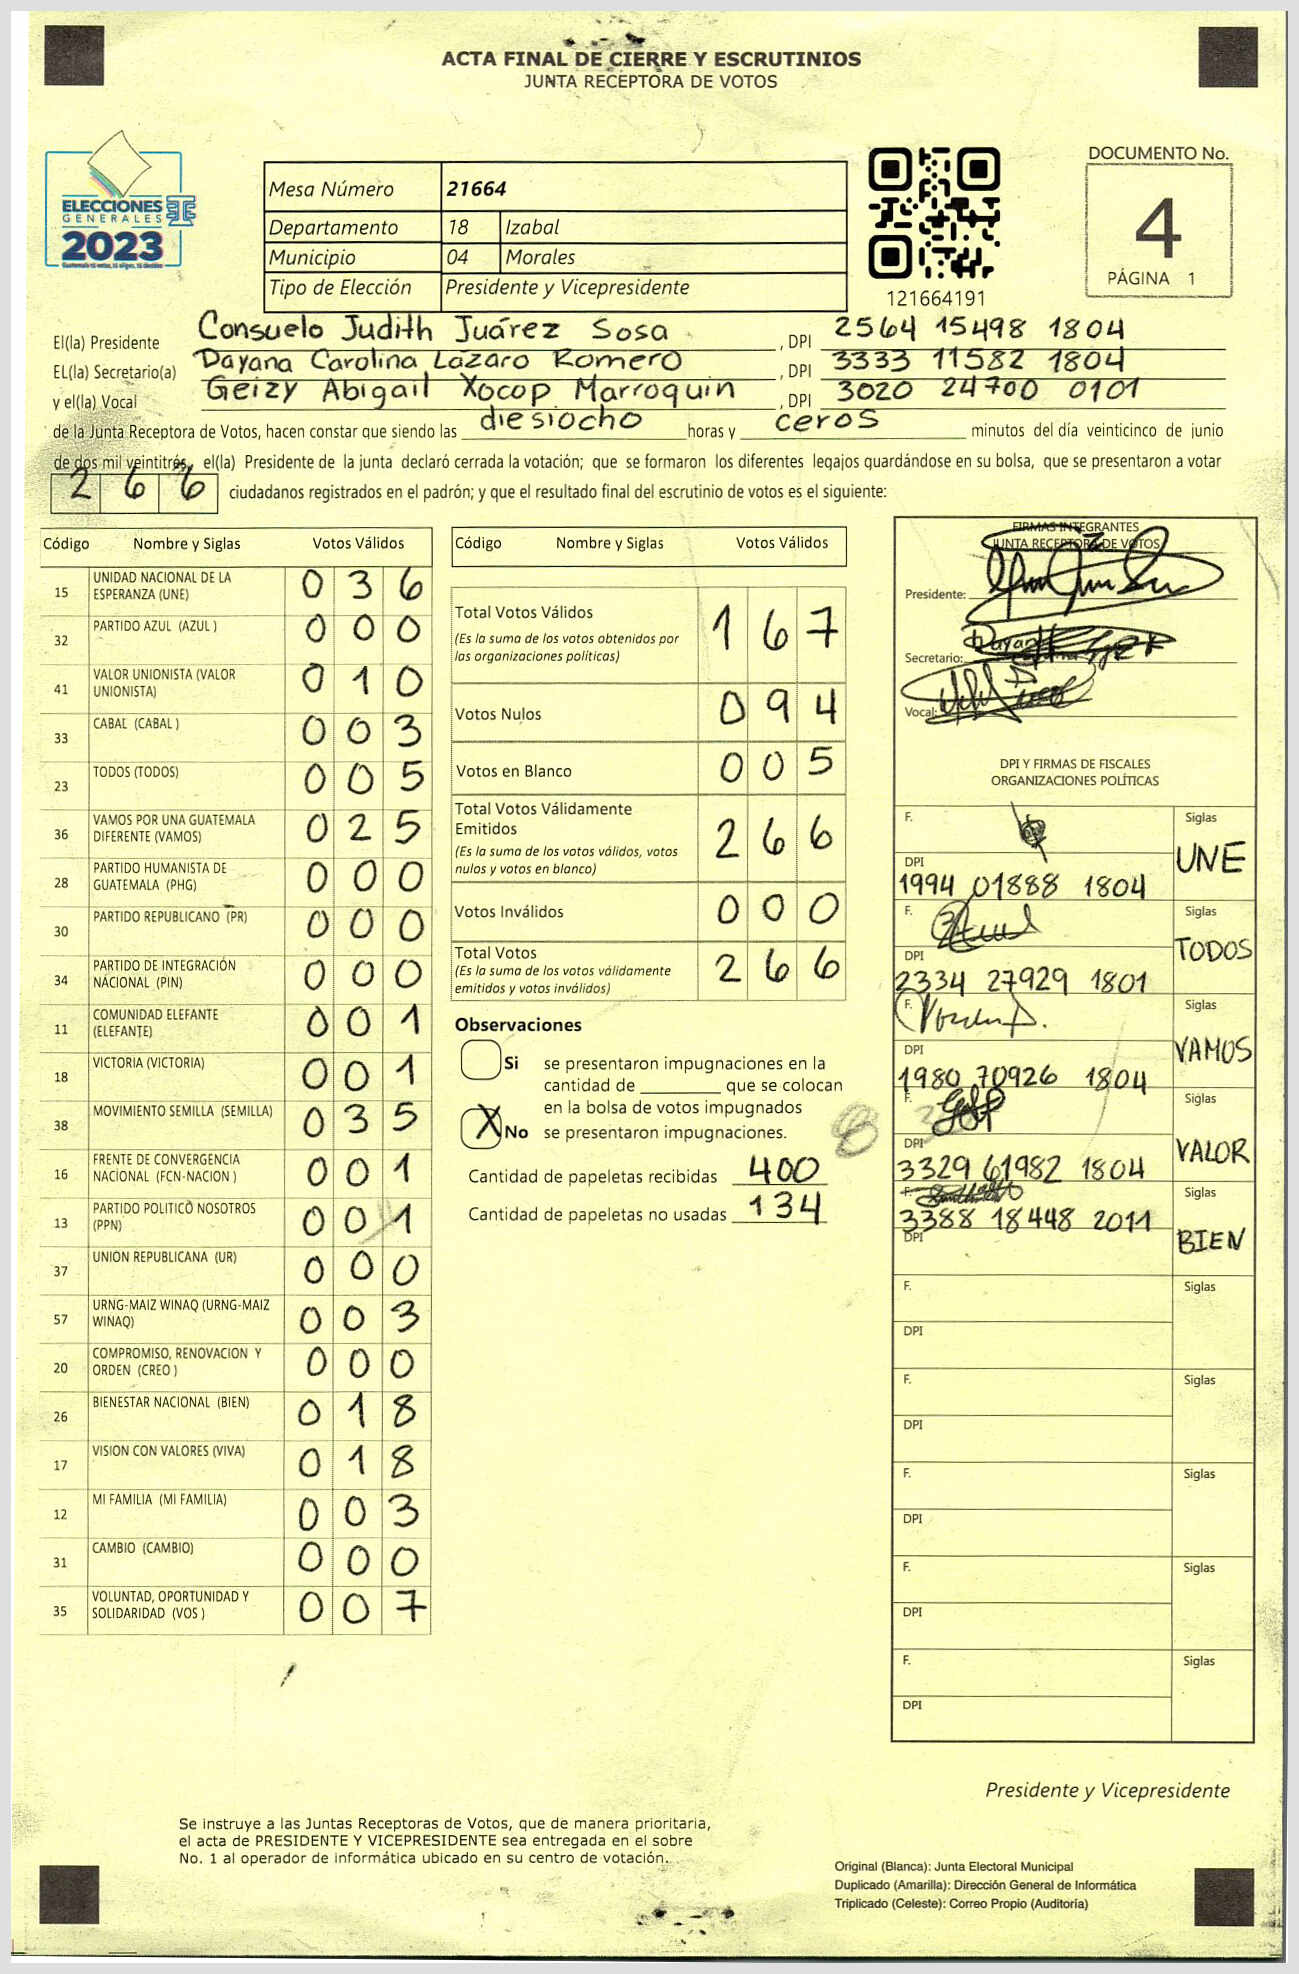 ACTA FINAL DE CIERRE Y ESCRUTINIOS
JUNTA RECEPTORA DE VOTOS
ELECCIONES
GENERALES
2023
Mesa Número 21664
Departamento 18 Izabal
Municipio 04 Morales
Tipo de Elección Presidente y Vicepresidente
121664191
DOCUMENTO No.
4
PÁGINA 1
El(la) Presidente Consuelo Judith Juárez Sosa , DPI 2564 15498 1804
EL(la) Secretario(a) Dayana Carolina Lázaro Romero , DPI 3333 11582 1804
y el(la) Vocal Geizy Abigail Xocop Marroquin , DPI 3020 24700 0101
de la Junta Receptora de Votos, hacen constar que siendo las diesiocho horas y ceros minutos del día veinticinco de junio
de dos mil veintitrés, el(la) Presidente de la junta declaró cerrada la votación; que se formaron los diferentes legajos guardándose en su bolsa, que se presentaron a votar
266 ciudadanos registrados en el padrón; y que el resultado final del escrutinio de votos es el siguiente:
Código Nombre y Siglas Votos Válidos
15 UNIDAD NACIONAL DE LA ESPERANZA (UNE) 0 3 6
32 PARTIDO AZUL (AZUL ) 0 0 0
41 VALOR UNIONISTA (VALOR UNIONISTA) 0 1 0
33 CABAL (CABAL ) 0 0 3
23 TODOS (TODOS) 0 0 5
36 VAMOS POR UNA GUATEMALA DIFERENTE (VAMOS) 0 2 5
28 PARTIDO HUMANISTA DE GUATEMALA (PHG) 0 0 0
30 PARTIDO REPUBLICANO (PR) 0 0 0
34 PARTIDO DE INTEGRACIÓN NACIONAL (PIN) 0 0 0
11 COMUNIDAD ELEFANTE (ELEFANTE) 0 0 1
18 VICTORIA (VICTORIA) 0 0 1
38 MOVIMIENTO SEMILLA (SEMILLA) 0 3 5
16 FRENTE DE CONVERGENCIA NACIONAL (FCN-NACION ) 0 0 1
13 PARTIDO POLITICO NOSOTROS (PPN) 0 0 1
37 UNION REPUBLICANA (UR) 0 0 0
57 URNG-MAIZ WINAQ (URNG-MAIZ WINAQ) 0 0 3
20 COMPROMISO, RENOVACION Y ORDEN (CREO ) 0 0 0
26 BIENESTAR NACIONAL (BIEN) 0 1 8
17 VISION CON VALORES (VIVA) 0 1 8
12 MI FAMILIA (MI FAMILIA) 0 0 3
31 CAMBIO (CAMBIO) 0 0 0
35 VOLUNTAD, OPORTUNIDAD Y SOLIDARIDAD (VOS ) 0 0 7
Código Nombre y Siglas Votos Válidos
Total Votos Válidos 1 6 7
(Es la suma de los votos obtenidos por
las organizaciones políticas)
Votos Nulos 0 9 4
Votos en Blanco 0 0 5
Total Votos Válidamente
Emitidos 2 6 6
(Es la suma de los votos válidos, votos
nulos y votos en blanco)
Votos Inválidos 0 0 0
Total Votos 2 6 6
(Es la suma de los votos válidamente
emitidos y votos inválidos)
Observaciones
Si se presentaron impugnaciones en la
cantidad de ________ que se colocan
en la bolsa de votos impugnados
X No se presentaron impugnaciones.
Cantidad de papeletas recibidas 400
Cantidad de papeletas no usadas 134
FIRMAS INTEGRANTES
JUNTA RECEPTORA DE VOTOS
Presidente:
Secretario:
Vocal:
DPI Y FIRMAS DE FISCALES
ORGANIZACIONES POLÍTICAS
F. Siglas
UNE
DPI
1994 01888 1804
F. Siglas
TODOS
DPI
2334 27929 1801
F. Siglas
VAMOS
DPI
1980 70926 1804
F. Siglas
VALOR
DPI
3329 61982 1804
F. Siglas
3388 18448 2011
BIEN
DPI
F. Siglas
DPI
F. Siglas
DPI
F. Siglas
DPI
F. Siglas
DPI
F. Siglas
DPI
Presidente y Vicepresidente
Se instruye a las Juntas Receptoras de Votos, que de manera prioritaria,
el acta de PRESIDENTE Y VICEPRESIDENTE sea entregada en el sobre
No. 1 al operador de informática ubicado en su centro de votación.
Original (Blanca): Junta Electoral Municipal
Duplicado (Amarilla): Dirección General de Informática
Triplicado (Celeste): Correo Propio (Auditoría)